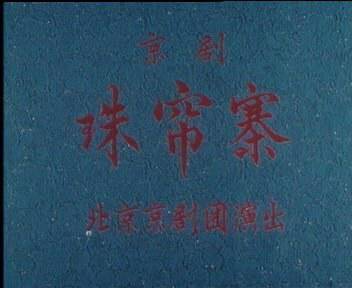 京剧
珠帘寨
北京京剧团演出